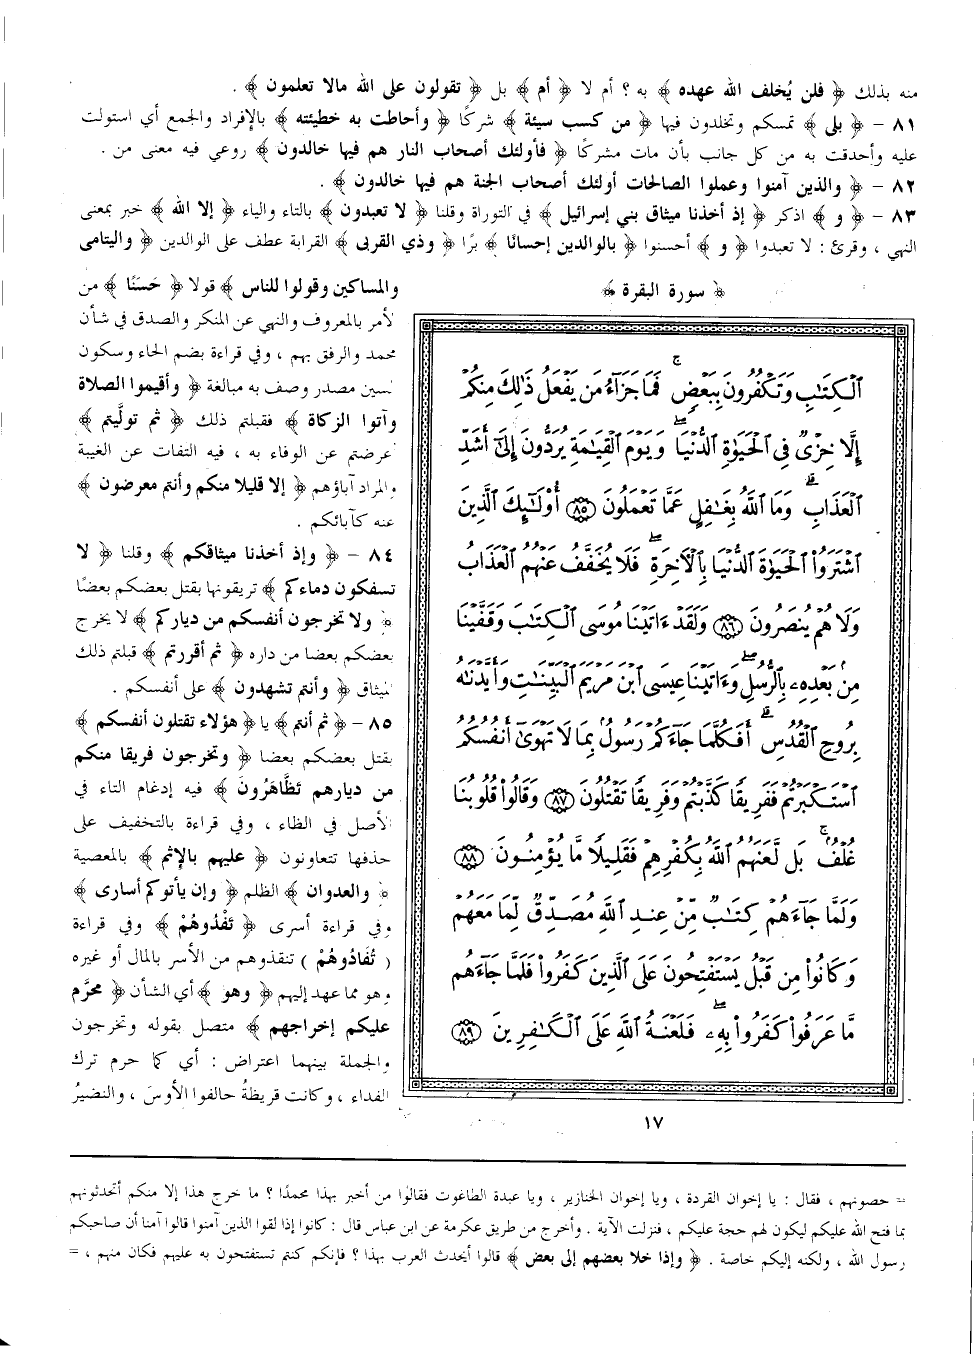 منه بذلك ﴿ فلن يُخلف الله عهده ﴾ به ؟ أم لا ﴿ أم ﴾ بل ﴿ تقولون على الله مالا تعلمون ﴾ .
٨١ – ﴿ بلى ﴾ تمسكم وتخلدون فيها ﴿ من كسب سيئة ﴾ شركًا ﴿ وأحاطت به خطيئته ﴾ بالإفراد والجمع أي استولت
عليه وأحدقت به من كل جانب بأن مات مشركًا ﴿ فأولئك أصحاب النار هم فيها خالدون ﴾ روعي فيه معنى من .
٨٢ – ﴿ والذين آمنوا وعملوا الصالحات أولئك أصحاب الجنة هم فيها خالدون ﴾ .
٨٣ – ﴿ و ﴾ اذكر ﴿ إذ أخذنا ميثاق بني إسرائيل ﴾ في التوراة وقلنا ﴿ لا تعبدون ﴾ بالتاء والياء ﴿ إلا الله ﴾ خبر بمعنى
النهي ، وقرئ : لا تعبدوا ﴿ و ﴾ أحسنوا ﴿ بالوالدين إحسانًا ﴾ برًا ﴿ وذي القربى ﴾ القرابة عطف على الوالدين ﴿ واليتامى
والمساكين وقولوا للناس ﴾ قولا ﴿ حَسَنًا ﴾ من
لأمر بالمعروف والنهي عن المنكر والصدق في شأن
محمد والرفق بهم ، وفي قراءة بضم الحاء وسكون
لسين مصدر وصف به مبالغة ﴿ وأقيموا الصلاة
وآتوا الزكاة ﴾ فقبلتم ذلك ﴿ ثم تولَّيتم ﴾
عرضتم عن الوفاء به ، فيه التفات عن الغيبة
والمراد آباؤهم ﴿ إلا قليلا منكم وأنتم معرضون ﴾
عنه كآبائكم .
٨٤ – ﴿ وإذ أخذنا ميثاقكم ﴾ وقلنا ﴿ لا
تسفكون دماءكم ﴾ تريقونها بقتل بعضكم بعضا
﴿ ولا تخرجون أنفسكم من دياركم ﴾ لا يخرج
بعضكم بعضا من داره ﴿ ثم أقررتم ﴾ قبلتم ذلك
لميثاق ﴿ وأنتم تشهدون ﴾ على أنفسكم .
٨٥ – ﴿ ثم أنتم ﴾ يا ﴿ هؤلاء تقتلون أنفسكم ﴾
بقتل بعضكم بعضا ﴿ وتخرجون فريقا منكم
من ديارهم تظَّاهَرُونَ ﴾ فيه إدغام التاء في
الأصل في الظاء ، وفي قراءة بالتخفيف على
حذفها تتعاونون ﴿ عليهم بالإثم ﴾ بالمعصية
﴿ والعدوان ﴾ الظلم ﴿ وإن يأتوكم أسارى ﴾
وفي قراءة أسرى ﴿ تَفْدُوهُمْ ﴾ وفي قراءة
( تُفَادُوهُمْ ) تنقذوهم من الأسر بالمال أو غيره
وهو مما عهد إليهم ﴿ وهو ﴾ أي الشأن ﴿ محرَّم
عليكم إخراجهم ﴾ متصل بقوله وتخرجون
والجملة بينهما اعتراض : أي كما حرم ترك
الفداء ، وكانت قريظةُ حالفوا الأوسَ ، والنضيرُ
﴿ سورة البقرة ﴾
ٱلْكِتَٰبِ وَتَكْفُرُونَ بِبَعْضٍ ۚ فَمَا جَزَآءُ مَن يَفْعَلُ ذَٰلِكَ مِنكُمْ
إِلَّا خِزْىٌ فِى ٱلْحَيَوٰةِ ٱلدُّنْيَا ۖ وَيَوْمَ ٱلْقِيَٰمَةِ يُرَدُّونَ إِلَىٰٓ أَشَدِّ
ٱلْعَذَابِ ۗ وَمَا ٱللَّهُ بِغَٰفِلٍ عَمَّا تَعْمَلُونَ ٨٥ أُو۟لَٰٓئِكَ ٱلَّذِينَ
ٱشْتَرَوُا۟ ٱلْحَيَوٰةَ ٱلدُّنْيَا بِٱلْـَٔاخِرَةِ ۖ فَلَا يُخَفَّفُ عَنْهُمُ ٱلْعَذَابُ
وَلَا هُمْ يُنصَرُونَ ٨٦ وَلَقَدْ ءَاتَيْنَا مُوسَى ٱلْكِتَٰبَ وَقَفَّيْنَا
مِنۢ بَعْدِهِۦ بِٱلرُّسُلِ ۖ وَءَاتَيْنَا عِيسَى ٱبْنَ مَرْيَمَ ٱلْبَيِّنَٰتِ وَأَيَّدْنَٰهُ
بِرُوحِ ٱلْقُدُسِ ۗ أَفَكُلَّمَا جَآءَكُمْ رَسُولٌۢ بِمَا لَا تَهْوَىٰٓ أَنفُسُكُمُ
ٱسْتَكْبَرْتُمْ فَفَرِيقًا كَذَّبْتُمْ وَفَرِيقًا تَقْتُلُونَ ٨٧ وَقَالُوا۟ قُلُوبُنَا
غُلْفٌۢ ۚ بَل لَّعَنَهُمُ ٱللَّهُ بِكُفْرِهِمْ فَقَلِيلًا مَّا يُؤْمِنُونَ ٨٨
وَلَمَّا جَآءَهُمْ كِتَٰبٌ مِّنْ عِندِ ٱللَّهِ مُصَدِّقٌ لِّمَا مَعَهُمْ
وَكَانُوا۟ مِن قَبْلُ يَسْتَفْتِحُونَ عَلَى ٱلَّذِينَ كَفَرُوا۟ فَلَمَّا جَآءَهُم
مَّا عَرَفُوا۟ كَفَرُوا۟ بِهِۦ ۚ فَلَعْنَةُ ٱللَّهِ عَلَى ٱلْكَٰفِرِينَ ٨٩
١٧
= حصونهم ، فقال : يا إخوان القردة ، ويا إخوان الخنازير ، ويا عبدة الطاغوت فقالوا من أخبر بهذا محمدًا ؟ ما خرج هذا إلا منكم أتحدثونهم
بما فتح الله عليكم ليكون لهم حجة عليكم ، فنزلت الآية . وأخرج من طريق عكرمة عن ابن عباس قال : كانوا إذا لقوا الذين آمنوا قالوا آمنا أن صاحبكم
رسول الله ، ولكنه إليكم خاصة . ﴿ وإذا خلا بعضهم إلى بعض ﴾ قالوا أيحدث العرب بهذا ؟ فإنكم كنتم تستفتحون به عليهم فكان منهم ، =